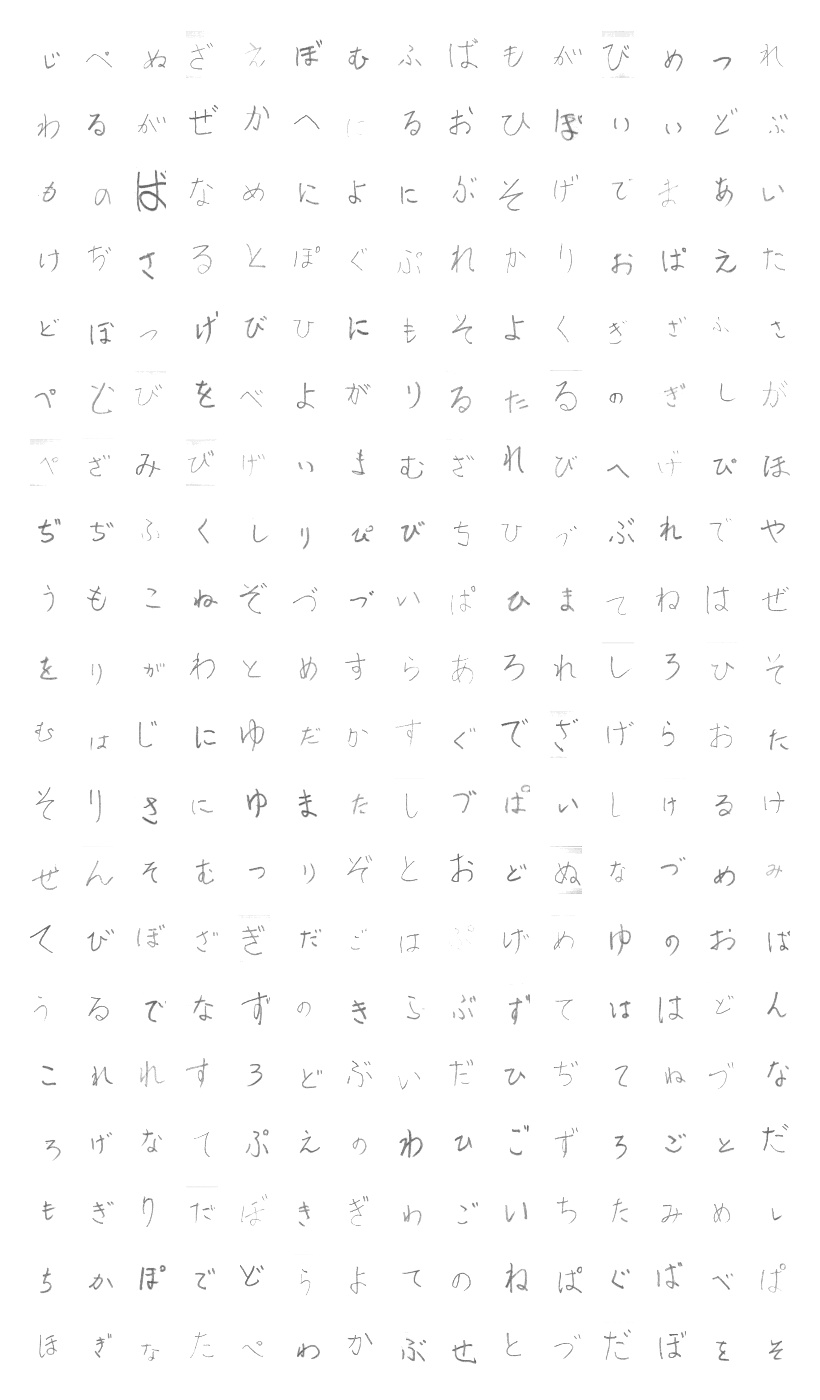 じぺぬざえぼむふぱもがびめつれ
わるがぜかへにるおひぼいいどぶ
ものばなめによにぶそげでまあい
けぢさるとぽぐぷれかりおぱえた
どぼつげびひにもそよくぎざふさ
ぺどびをべよがりるたるのぎしが
ぺざみびげいまむざれびへげぴほ
ぢぢふくしりぴびちひづぶれでや
うもこねぞづづいぱひまてねはぜ
をりがわとめすらあろれしろひそ
むはじにゆだかすぐでざげらおた
そりさにゆまたしづぱいしけるけ
ぜんそむつりぞとおどぬなづめみ
てびぼざぎだごはぷげめゆのおば
うるでなずのきらぶずてははどん
これれすろどぶいだひぢてねづな
ろげなてぷえのわひごずろごとだ
もぎりだぼきぎわごいちたみめし
ちかぽでどらよてのねぱぐばべぱ
ほぎなたぺわかぶせとづだぼをそ